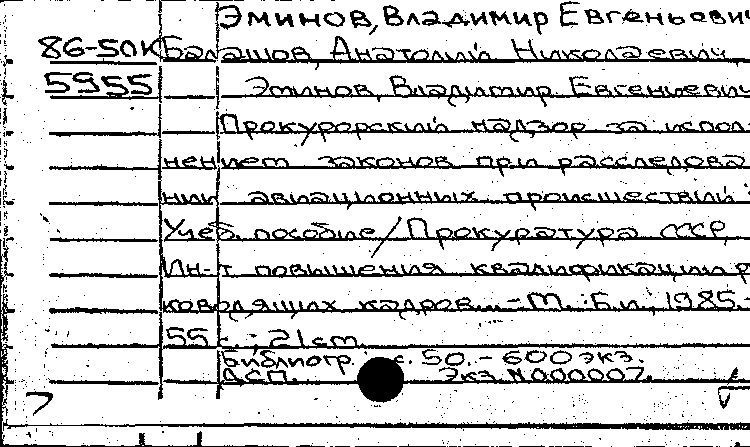 Эминов, Владимир Евгеньевич
86-50К Балашов, Анатолий Николаевич,
5955 Эминов, Владимир Евгениевич
Прокурорский надзор за испол-
нением законов при расследова
нии авиационных происшествий :
Учеб. пособие / Прокуратура СССР,
Ин-т повышения квалификации р
ководящих кадров. - М. : Б.и., 1985.-
55 с. ; 21 cm
Библиогр. с. 50. - 600 экз.
ДСП. Экз. N000007.